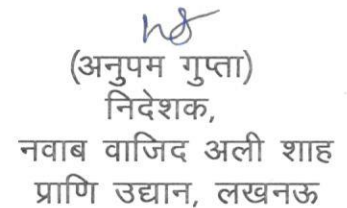 (अनुपम गुप्ता)
निदेशक,
नवाब वाजिद अली शाह
प्राणि उद्यान, लखनऊ